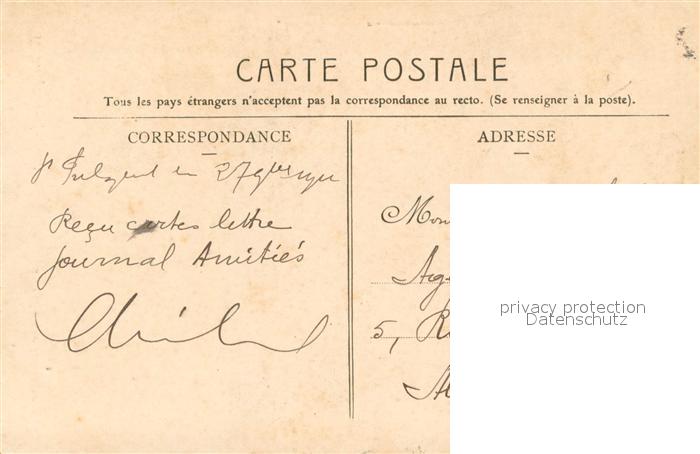 CARTE POSTALE
Tous les pays étrangers n'acceptent pas la correspondance au recto. (Se renseigner à la poste).
CORRESPONDANCE
ADRESSE
en 27
Reçu cartes lettre
journal Amitiés
5,
privacy protection
Datenschutz